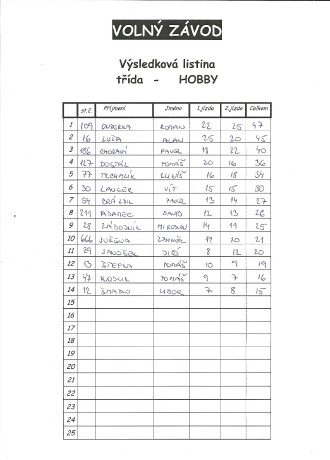 VOLNÝ ZÁVOD
Výsledková listina
třída - HOBBY
st.č. Příjmení Jméno 1.jízda 2.jízda Celkem
1 109 ROMAN 22 25 47
2 16 ALAN 25 20 45
3 PAVEL 18 22 40
4 127 DOSTÁL TOMÁŠ 20 16 36
5 77 LUKÁŠ 16 18 34
6 30 LANGER VÍT 15 15 30
7 54 13 14 27
8 211 ADAMEC DAVID 12 13 26
9 28 ZÁVODNÍK MIROSLAV 14 11 25
10 666 11 10 21
11 29 JANOŠEK JIŘÍ 8 12 20
12 13 ŠTĚPKA TOMÁŠ 10 9 19
13 47 TOMÁŠ 9 7 16
14 12 LIBOR 7 8 15
15
16
17
18
19
20
21
22
23
24
25